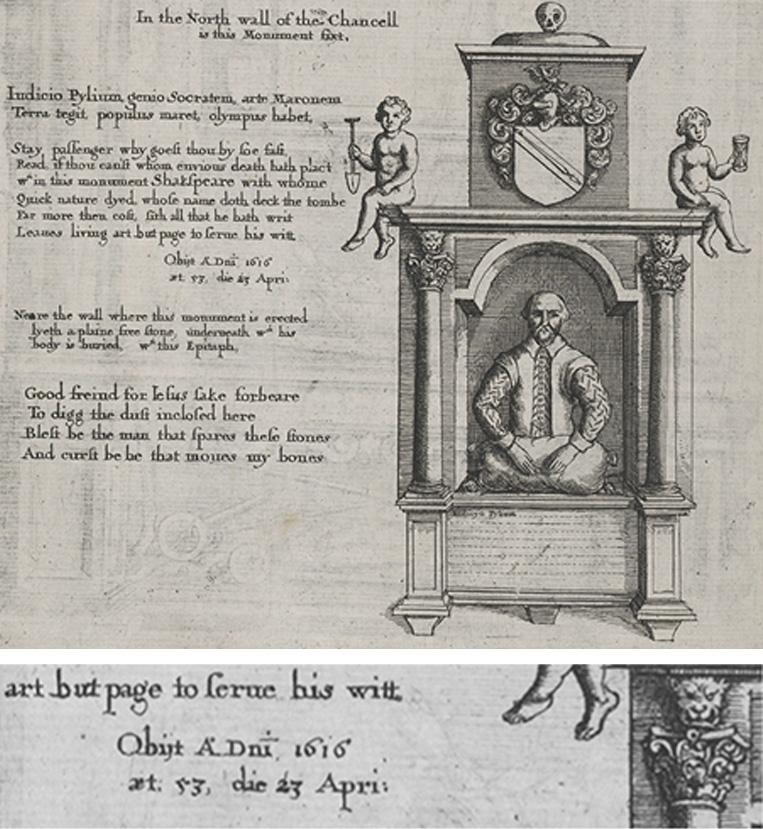 In the North wall of the Chancell
is this Monument fixt.
Iudicio Pylium, genio Socratem, arte Maronem
Terra tegit, populus mæret, olympus habet.
Stay, passenger why goest thou by soe fast,
Read, if thou canst whom envious death hath plac't
wth in this monument Shakspeare with whome
Quick nature dyed, whose name doth deck the tombe
Far more then cost, sith all that he hath writ
Leaves living art but page to serue his witt
Obijt A.Dni 1616
æt. 53, die 23 Apri:
Neare the wall where this monument is erected
lyeth a plaine free stone, underneath wch his
body is buried, wth this Epitaph,
Good freind for Iesus sake forbeare
To digg the dust inclosed here
Blest be the man that spares these stones
And curst be he that moues my bones
art but page to serue his witt
Obijt A.Dni 1616
æt. 53, die 23 Apri: